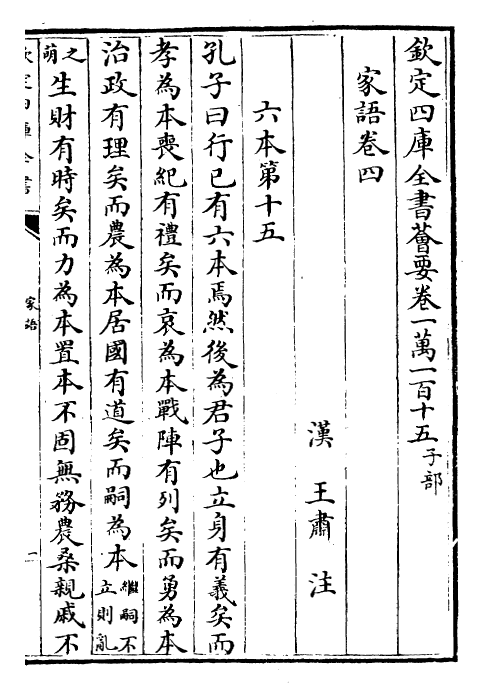 欽定四庫全書薈要卷一萬一百十五子部
家語卷四
漢 王肅 注
六本第十五
孔子曰行己有六本焉然後為君子也立身有義矣而
孝為本喪紀有禮矣而哀為本戰陣有列矣而勇為本
治政有理矣而農為本居國有道矣而嗣為本繼嗣不立則亂
之萌生財有時矣而力為本置本不固無務農桑親戚不
欽定四庫全書 家語 一